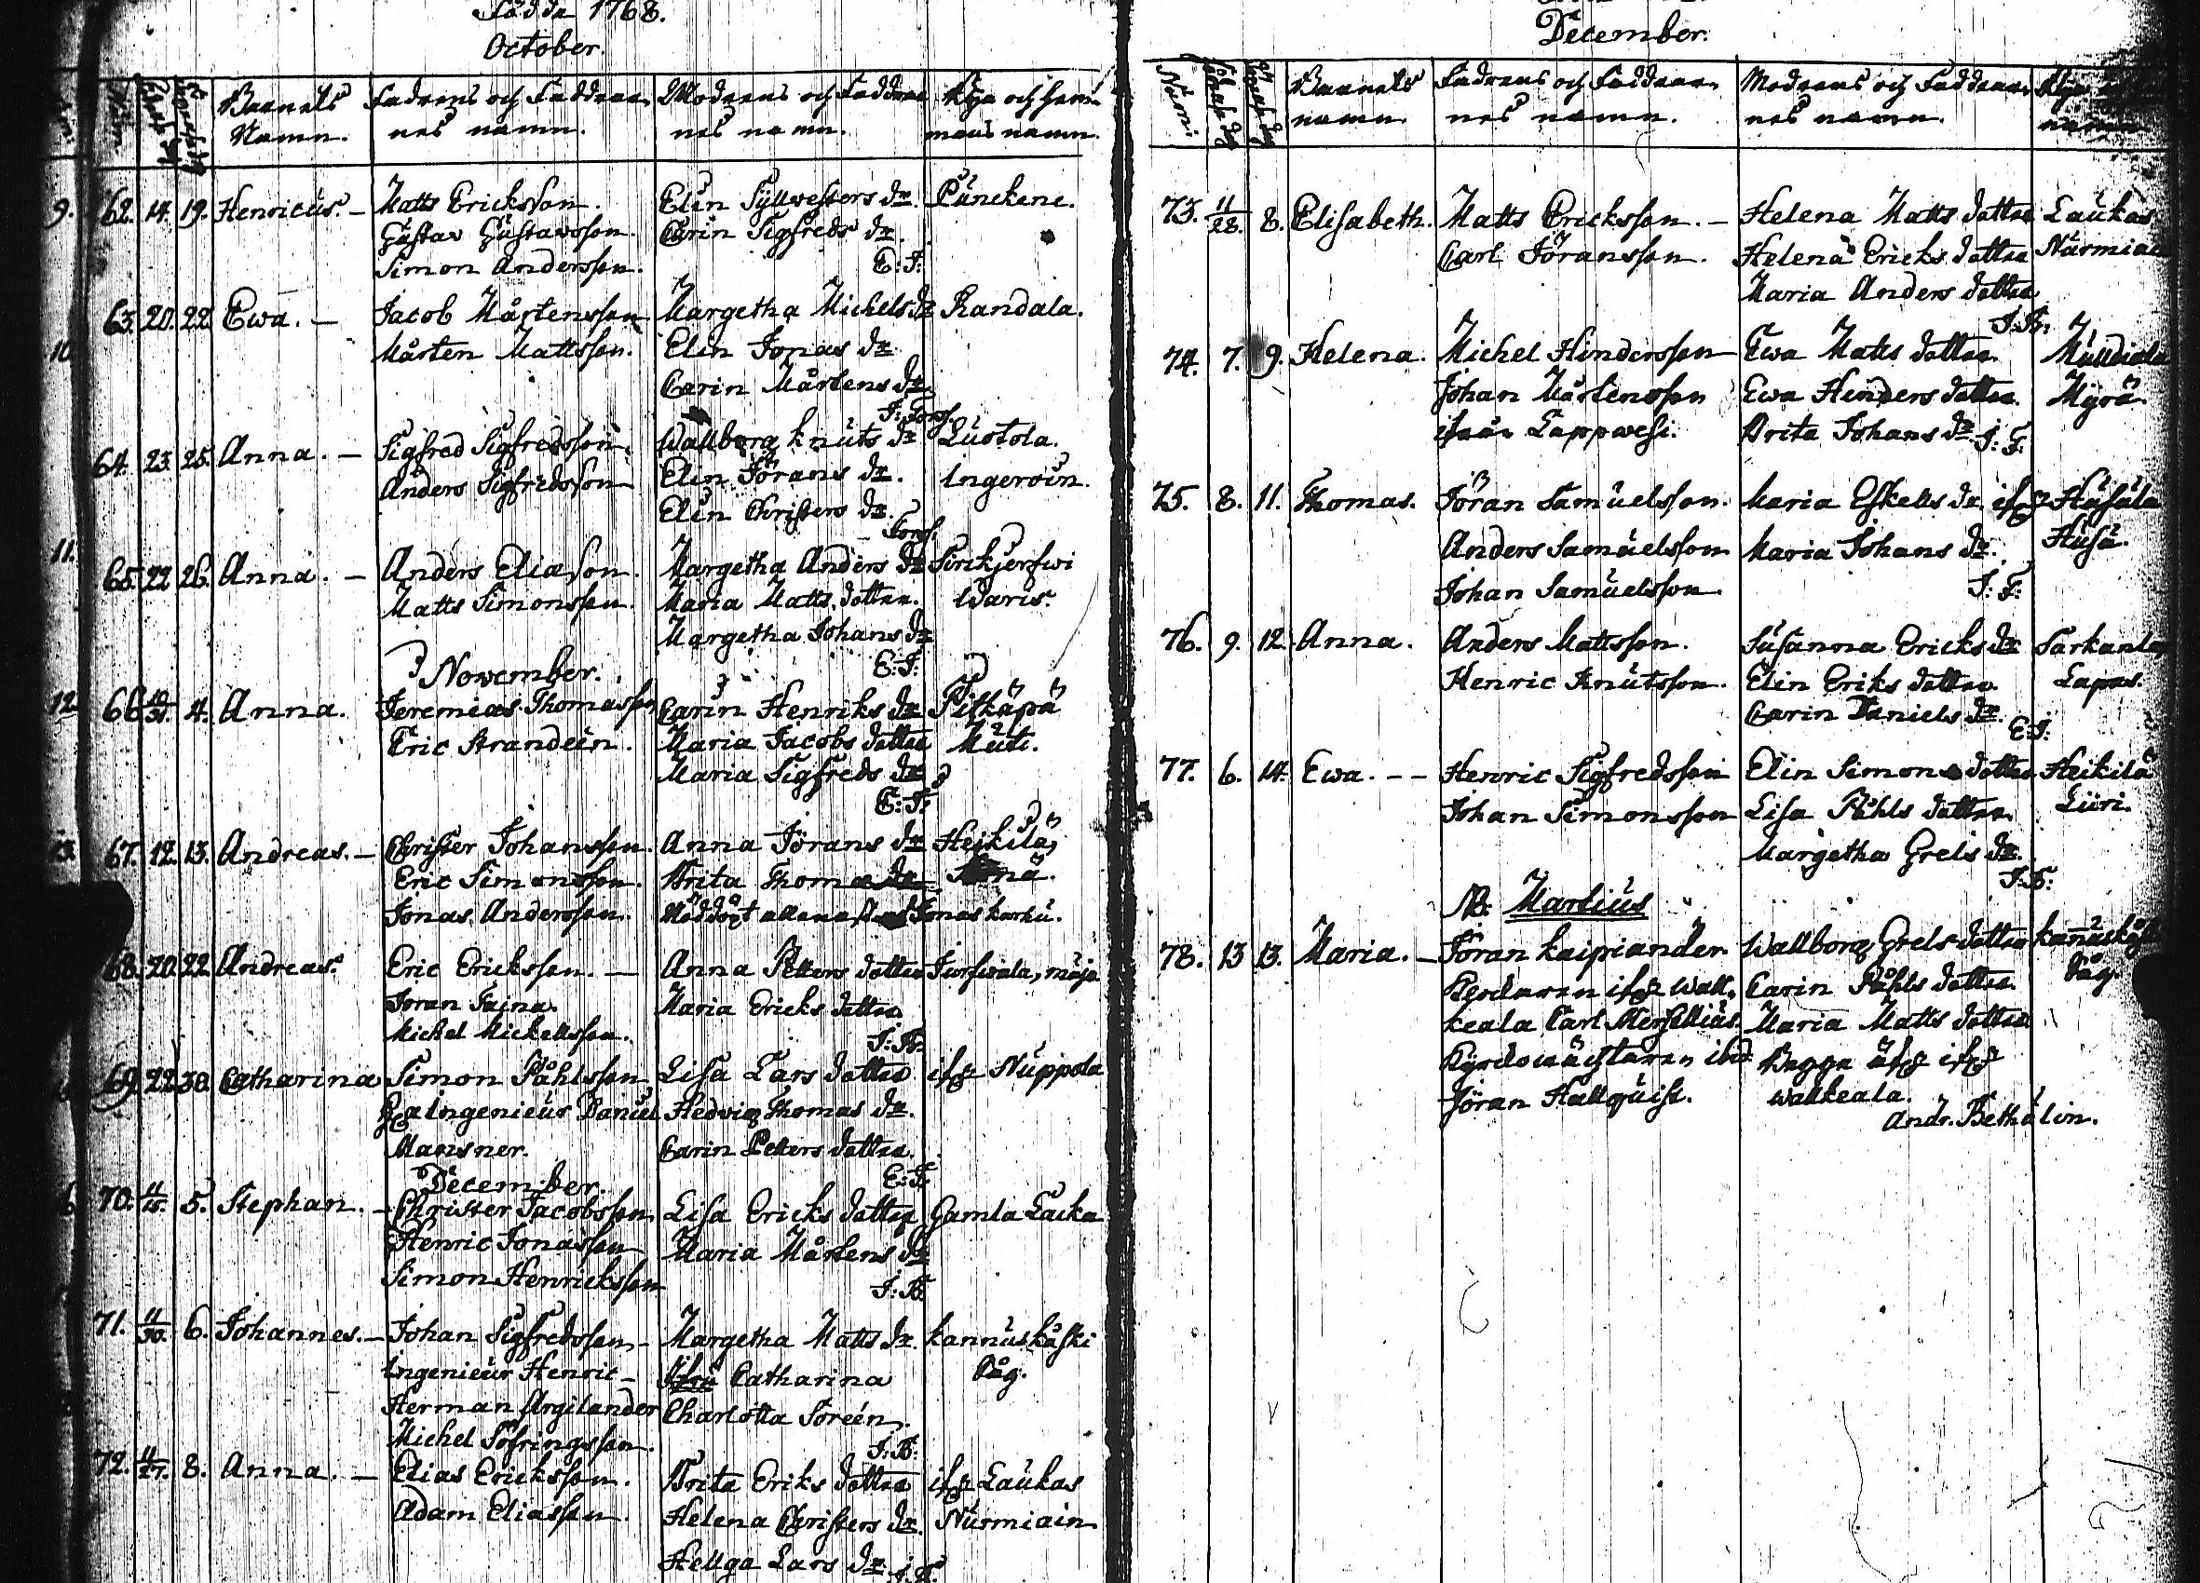 Födda 1768.
October.
Num:
Födelse dag
Barnets
Namn.
Fadrens och Faddrar-
nes namn.
Modrens och Faddrar
nes namn.
Bya och Hem-
mans namn.
9. 62. 14. 19. Henricus. — Matts Ericksson. Elin Syllvesters dr. Punckene.
Gustav Gustavsson. Carin Sigfreds dr.
Simon Andersson. E: F:
63. 20. 22. Ewa. — Jacob Mårtensson Margetha Michels dr Randala.
10. Mårten Mattsson. Elin Jonas dr
Carin Mårtens dr
64. 23. 25. Anna. — Sigfred Sigfredsson. Wallborg Knuts dr Lustola.
Anders Sigfredsson Elin Jörans dr. Ingeroin.
Elin Christers dr.
11.
65. 22 26. Anna. — Anders Eliason. Margetha Anders dr Sirikjerfwi
Matts Simonsson. Maria Matts dotter. Waris.
Margetha Johans dr
E: F:
November.
12. 66 10/31. 4. Anna. Jeremias Thomasson Carin Henriks dr Pitkäpä
Eric Strandeen. Maria Jacobs dotter Muti.
Maria Sigfreds dr
E: F:
13. 67. 12. 13. Andreas. — Christer Johansson. Anna Jörans dr Heikilä,
Eric Simonsson. Brita Thomas dr
Jonas Andersson. Nöddöpt Jonas karhu.
68. 20. 22 Andreas. Eric Ericksson. — Anna Petters dotter Jurfwala, maja
Joran Taina. Maria Ericks dotter
Michel Mickelsson. J: B:
69. 22 30. Catharina Simon Påhlsson Lisa Lars dotter Nuppola
Ingenieur Daniel Hedvig Thomas dr.
Mansner. Carin Petters dotter
E: F:
December.
70. 11/25. 5. Stephan. — Christer Jacobsson Lisa Ericks dotter Gamla Lacka
Henric Jonasson Maria Mårtens dr
Simon Henricksson J: B:
71. 11/30. 6. Johannes. — Johan Sigfredsson — Margetha Matts dr. kannuskåski
Ingenieur Henric — Catharina Påg.
Herman Argilander Charlotta Soreén.
Michel Tofringsson. J: B:
72. 11/27. 8. Anna. — Elias Ericksson. Brita Eriks dotter Laukas
Adam Eliasson. Helena Christers dr. Nurmiain
Hellga Lars dr
December.
Num:
Barnets
namn.
Fadrens och Faddrar-
nes namn.
Modrens och Faddrar-
nes namn.
Bya
namn
73. 11/28. 8. Elisabeth. Matts Ericksson. — Helena Matts dotter Laukas
Carl Jöransson. Helena Ericks dotter Nurmiain
Maria Anders dotter
J: B:
74. 7. 9. Helena. Michel Hindersson Ewa Matts dotter. Mulldiala
Johan Mårtensson Ewa Hinders dotter. Myrä
Lappwesi. Brita Johans dr J: F:
75. 8. 11. Thomas. Jöran Samuelsson. Maria Eskells dr. Husula
Anders Samuelsson Maria Johans dr. Husu.
Johan Samuelsson J: F:
76. 9. 12. Anna. Anders Mattsson. Susanna Ericks dr Sarkanla
Henric Knutsson. Elin Eriks dotter. Lapas.
Carin Daniels dr.
E: F:
77. 6. 14. Ewa. — — Henric Sigfredsson Elin Simons dotter Heikilä
Johan Simonsson Lisa Påhls dotter. Liiri.
Margetha Grels dr.
J: B:
NB. Martius
78. 13 13. Maria. — Jöran kaipiander Wallborg Grels dotter
Carin Påhls dotter Påg.
keala Carl Maria Matts dotter
Begge
Jöran Hallquist. walkeala.
Andr. Bethulin.